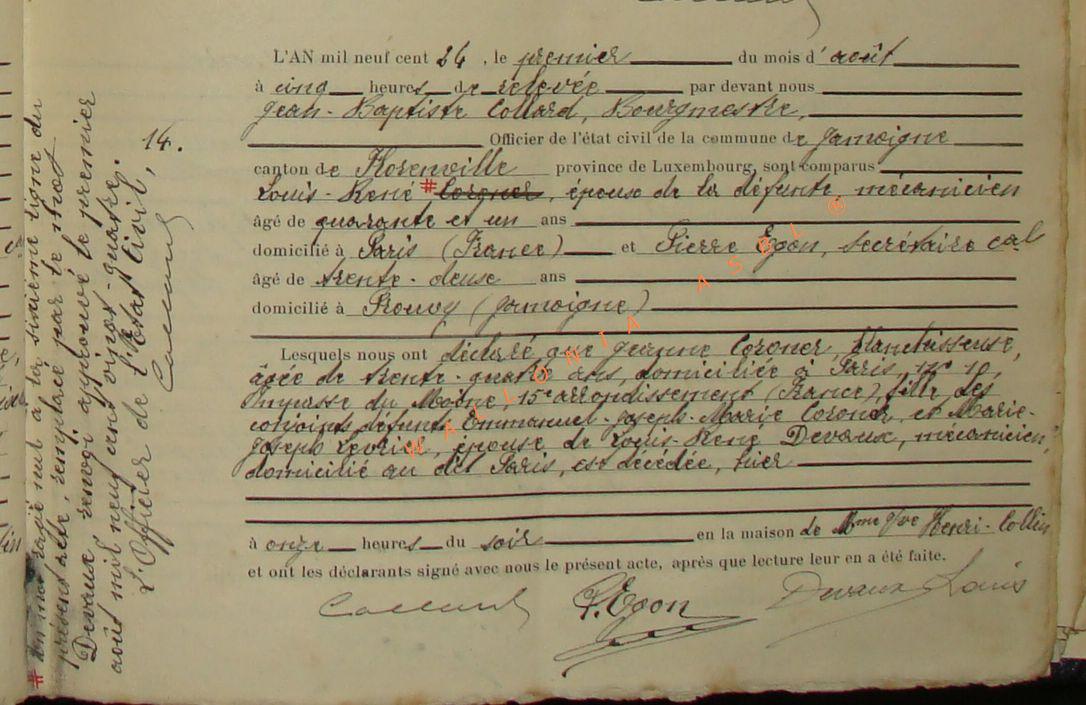 14.
L'AN mil neuf cent 24, le premier du mois d'août
à cinq heures de relevée par devant nous
Jean-Baptiste Collard, Bourgmestre,
Officier de l'état civil de la commune de Jamoigne
canton de Florenville province de Luxembourg, sont comparus
Louis-René # Coroner, épouse de la défunte, mécanicien
âgé de quarante et un ans
domicilié à Paris (France) et Pierre Egon, secrétaire cal
âgé de trente-deuse ans
domicilié à Prouvy (Jamoigne)
Lesquels nous ont déclaré que Jeanne Coroner, blanchisseuse,
âgée de trente-quatre ans, domiciliée à Paris, n° 10,
Impasse du Moine, 15e arrondissement (France), fille des
conjoints défunts Emmanuel-Joseph-Marie Coroner, et Marie-
Joseph, épouse de Louis-René Devaux, mécanicien,
domicilié au dit Paris, est décédée, hier
à onze heures du soir en la maison de Mme Vve Henri-Collin
et ont les déclarants signé avec nous le présent acte, après que lecture leur en a été faite.
Collard P. Egon Devaux Louis
# Un mot rayé nul à la sixième ligne du
présent acte, remplacé par le mot
Devaux, renvoi approuvé le premier
août mil neuf cent vingt-quatre.
L'Officier de l'Etat Civil,
Collard
WALLONIA ASBL ®